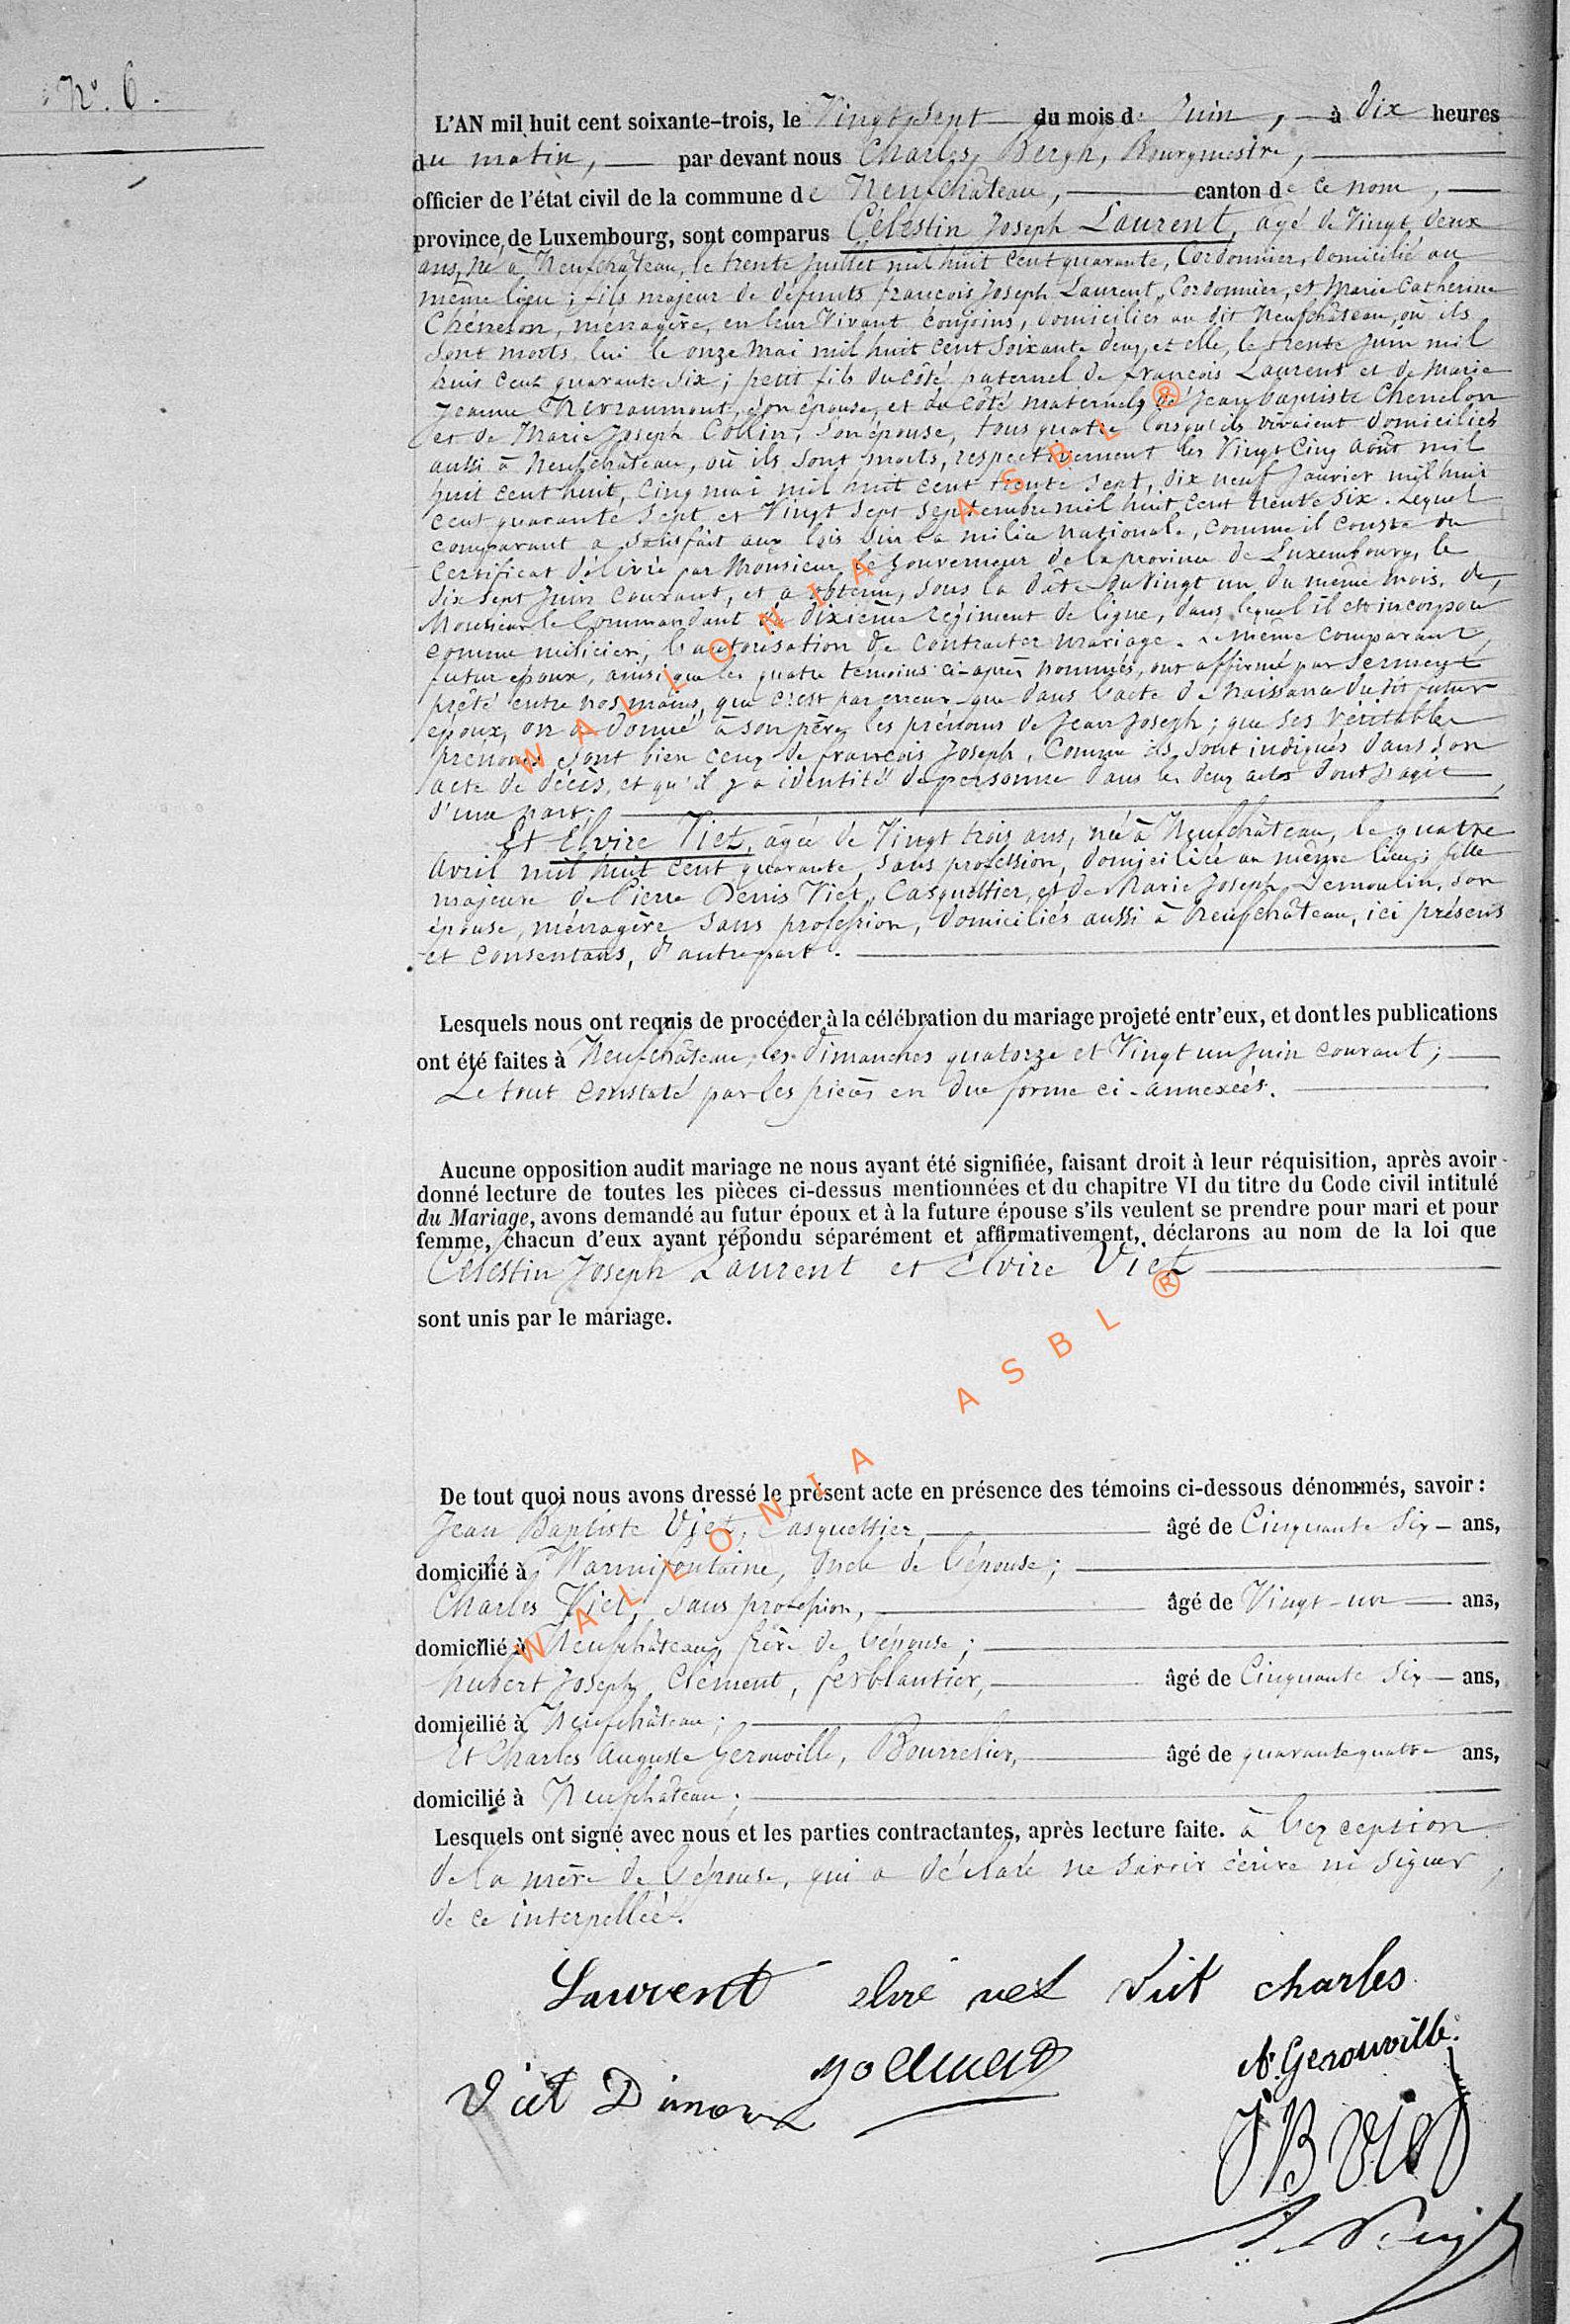 N°. 6.
L'AN mil huit cent soixante-trois, le Vingt sept du mois de Juin, à Dix heures
du matin, par devant nous Charles Bergh, Bourgmestre,
officier de l'état civil de la commune de Neufchâteau, canton de ce nom,
province de Luxembourg, sont comparus Célestin Joseph Laurent, agé de Vingt deux
ans, né à Neufchâteau, le trente Juillet mil huit cent quarante, Cordonnier, domicilié au
même lieu ; fils majeur de défunts françois Joseph Laurent, Cordonnier, et Marie Catherine
Chénelon, ménagère, en leur Vivant conjoins, domiciliés au dit Neufchâteau, où ils
sont morts, lui le onze Mai mil huit cent soixante deux, et elle, le trente Juin mil
huit cent quarante six ; petit fils du côté paternel de françois Laurent et de Marie
Jeanne Nevraumont, son épouse, et du côté maternel, de Jean baptiste Chenelon
et de Marie Joseph Collin, son épouse, tous quatre lorsqu'ils vivaient domiciliés
aussi à Neufchâteau, où ils sont morts, respectivement les Vingt Cinq Août mil
huit cent huit, Cinq mai mil huit cent trente sept, dix neuf Janvier mil huit
cent quarante sept et Vingt sept septembre mil huit cent trente six. Lequel
comparant a satisfait aux lois sur la milice nationale, comme il conste du
certificat délivré par Monsieur le Gouverneur de la province de Luxembourg, le
dix sept Juin courant, et a obtenu, sous la date du Vingt un du même mois, de
Monsieur le Commandant du dixième régiment de ligne, dans lequel il est incorporé
comme milicien, l'autorisation de contracter mariage. Le même comparant,
futur époux, ainsi que les quatre témoins ci-après nommés, ont affirmé par serment
prêté entre nos mains, que c'est par erreur que dans l'acte de naissance du dit futur
époux, on a donné à son père les prénoms de Jean Joseph ; que ses véritables
prénoms sont bien ceux de françois Joseph, comme ils sont indiqués dans son
acte de décès, et qu'il y a identité de personne dans les deux actes dont s'agit
d'une part ;
Et Elvire Viet, âgée de Vingt trois ans, née à Neufchâteau, le quatre
Avril mil huit cent quarante, sans profession, domiciliée au même lieu ; fille
majeure de Pierre Denis Viet, Casquettier, et de Marie Joseph Demoulin, son
épouse, ménagère sans profession, domiciliés aussi à Neufchâteau, ici présens
et consentans, d'autre part.
Lesquels nous ont requis de procéder à la célébration du mariage projeté entr'eux, et dont les publications
ont été faites à Neufchâteau, les Dimanches quatorze et Vingt un Juin courant ;
Le tout constaté par les pièces en due forme ci-annexées.
Aucune opposition audit mariage ne nous ayant été signifiée, faisant droit à leur réquisition, après avoir
donné lecture de toutes les pièces ci-dessus mentionnées et du chapitre VI du titre du Code civil intitulé
du Mariage, avons demandé au futur époux et à la future épouse s'ils veulent se prendre pour mari et pour
femme, chacun d'eux ayant répondu séparément et affirmativement, déclarons au nom de la loi que
Célestin Joseph Laurent et Elvire Viet
sont unis par le mariage.
De tout quoi nous avons dressé le présent acte en présence des témoins ci-dessous dénommés, savoir :
Jean Baptiste Viet, Casquettier, âgé de Cinquante Six ans,
domicilié à Warmifontaine, Oncle de l'épouse ;
Charles Viet, sans profession, âgé de Vingt-un ans,
domicilié à Neufchâteau, frère de l'épouse ;
hubert Joseph Clément, ferblantier, âgé de Cinquante Six ans,
domicilié à Neufchâteau ;
Et Charles Auguste Gerouville, Bourrelier, âgé de quarante quatre ans,
domicilié à Neufchâteau ;
Lesquels ont signé avec nous et les parties contractantes, après lecture faite. à l'exception
de la mère de l'épouse, qui a déclaré ne savoir écrire ni signer,
de ce interpellée.
Laurent elvire viet Viet charles
A. Gerouville.
Viet
J B Viet
WALLONIA ASBL ®
WALLONIA ASBL ®